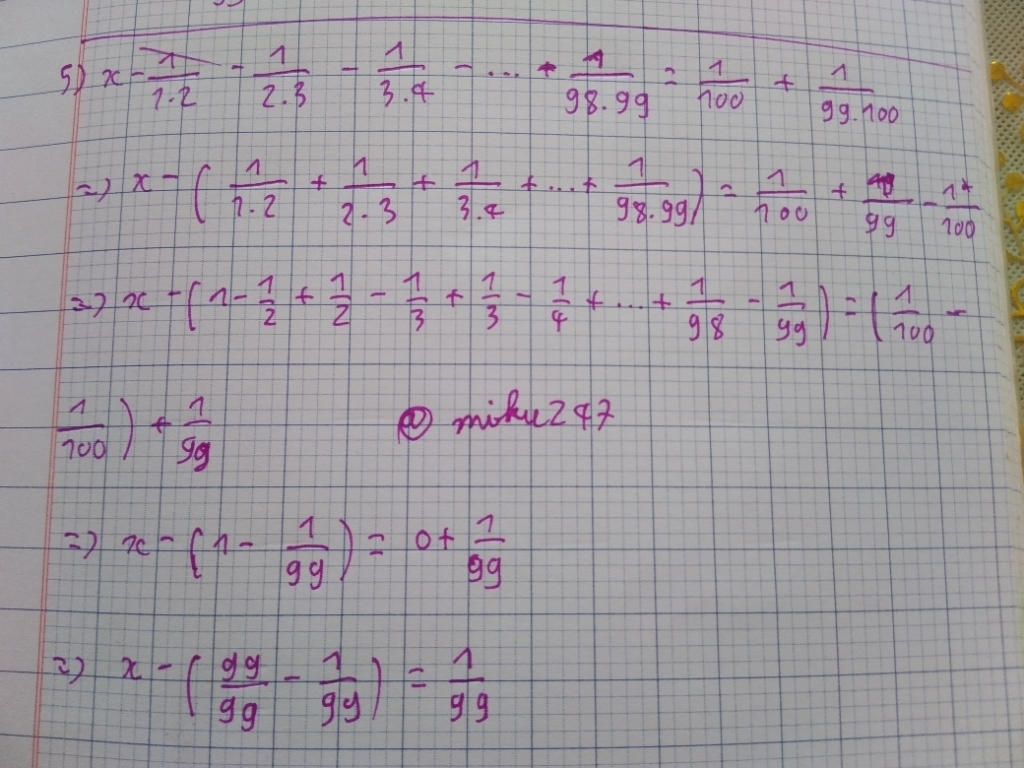 5) x - 1/1.2 - 1/2.3 - 1/3.4 - ... - 1/98.99 = 1/100 + 1/99.100
=> x - (1/1.2 + 1/2.3 + 1/3.4 + ... + 1/98.99) = 1/100 + 1/99 - 1/100
=> x - (1 - 1/2 + 1/2 - 1/3 + 1/3 - 1/4 + ... + 1/98 - 1/99) = (1/100 -
1/100) + 1/99
@ miku247
=> x - (1 - 1/99) = 0 + 1/99
=> x - (99/99 - 1/99) = 1/99